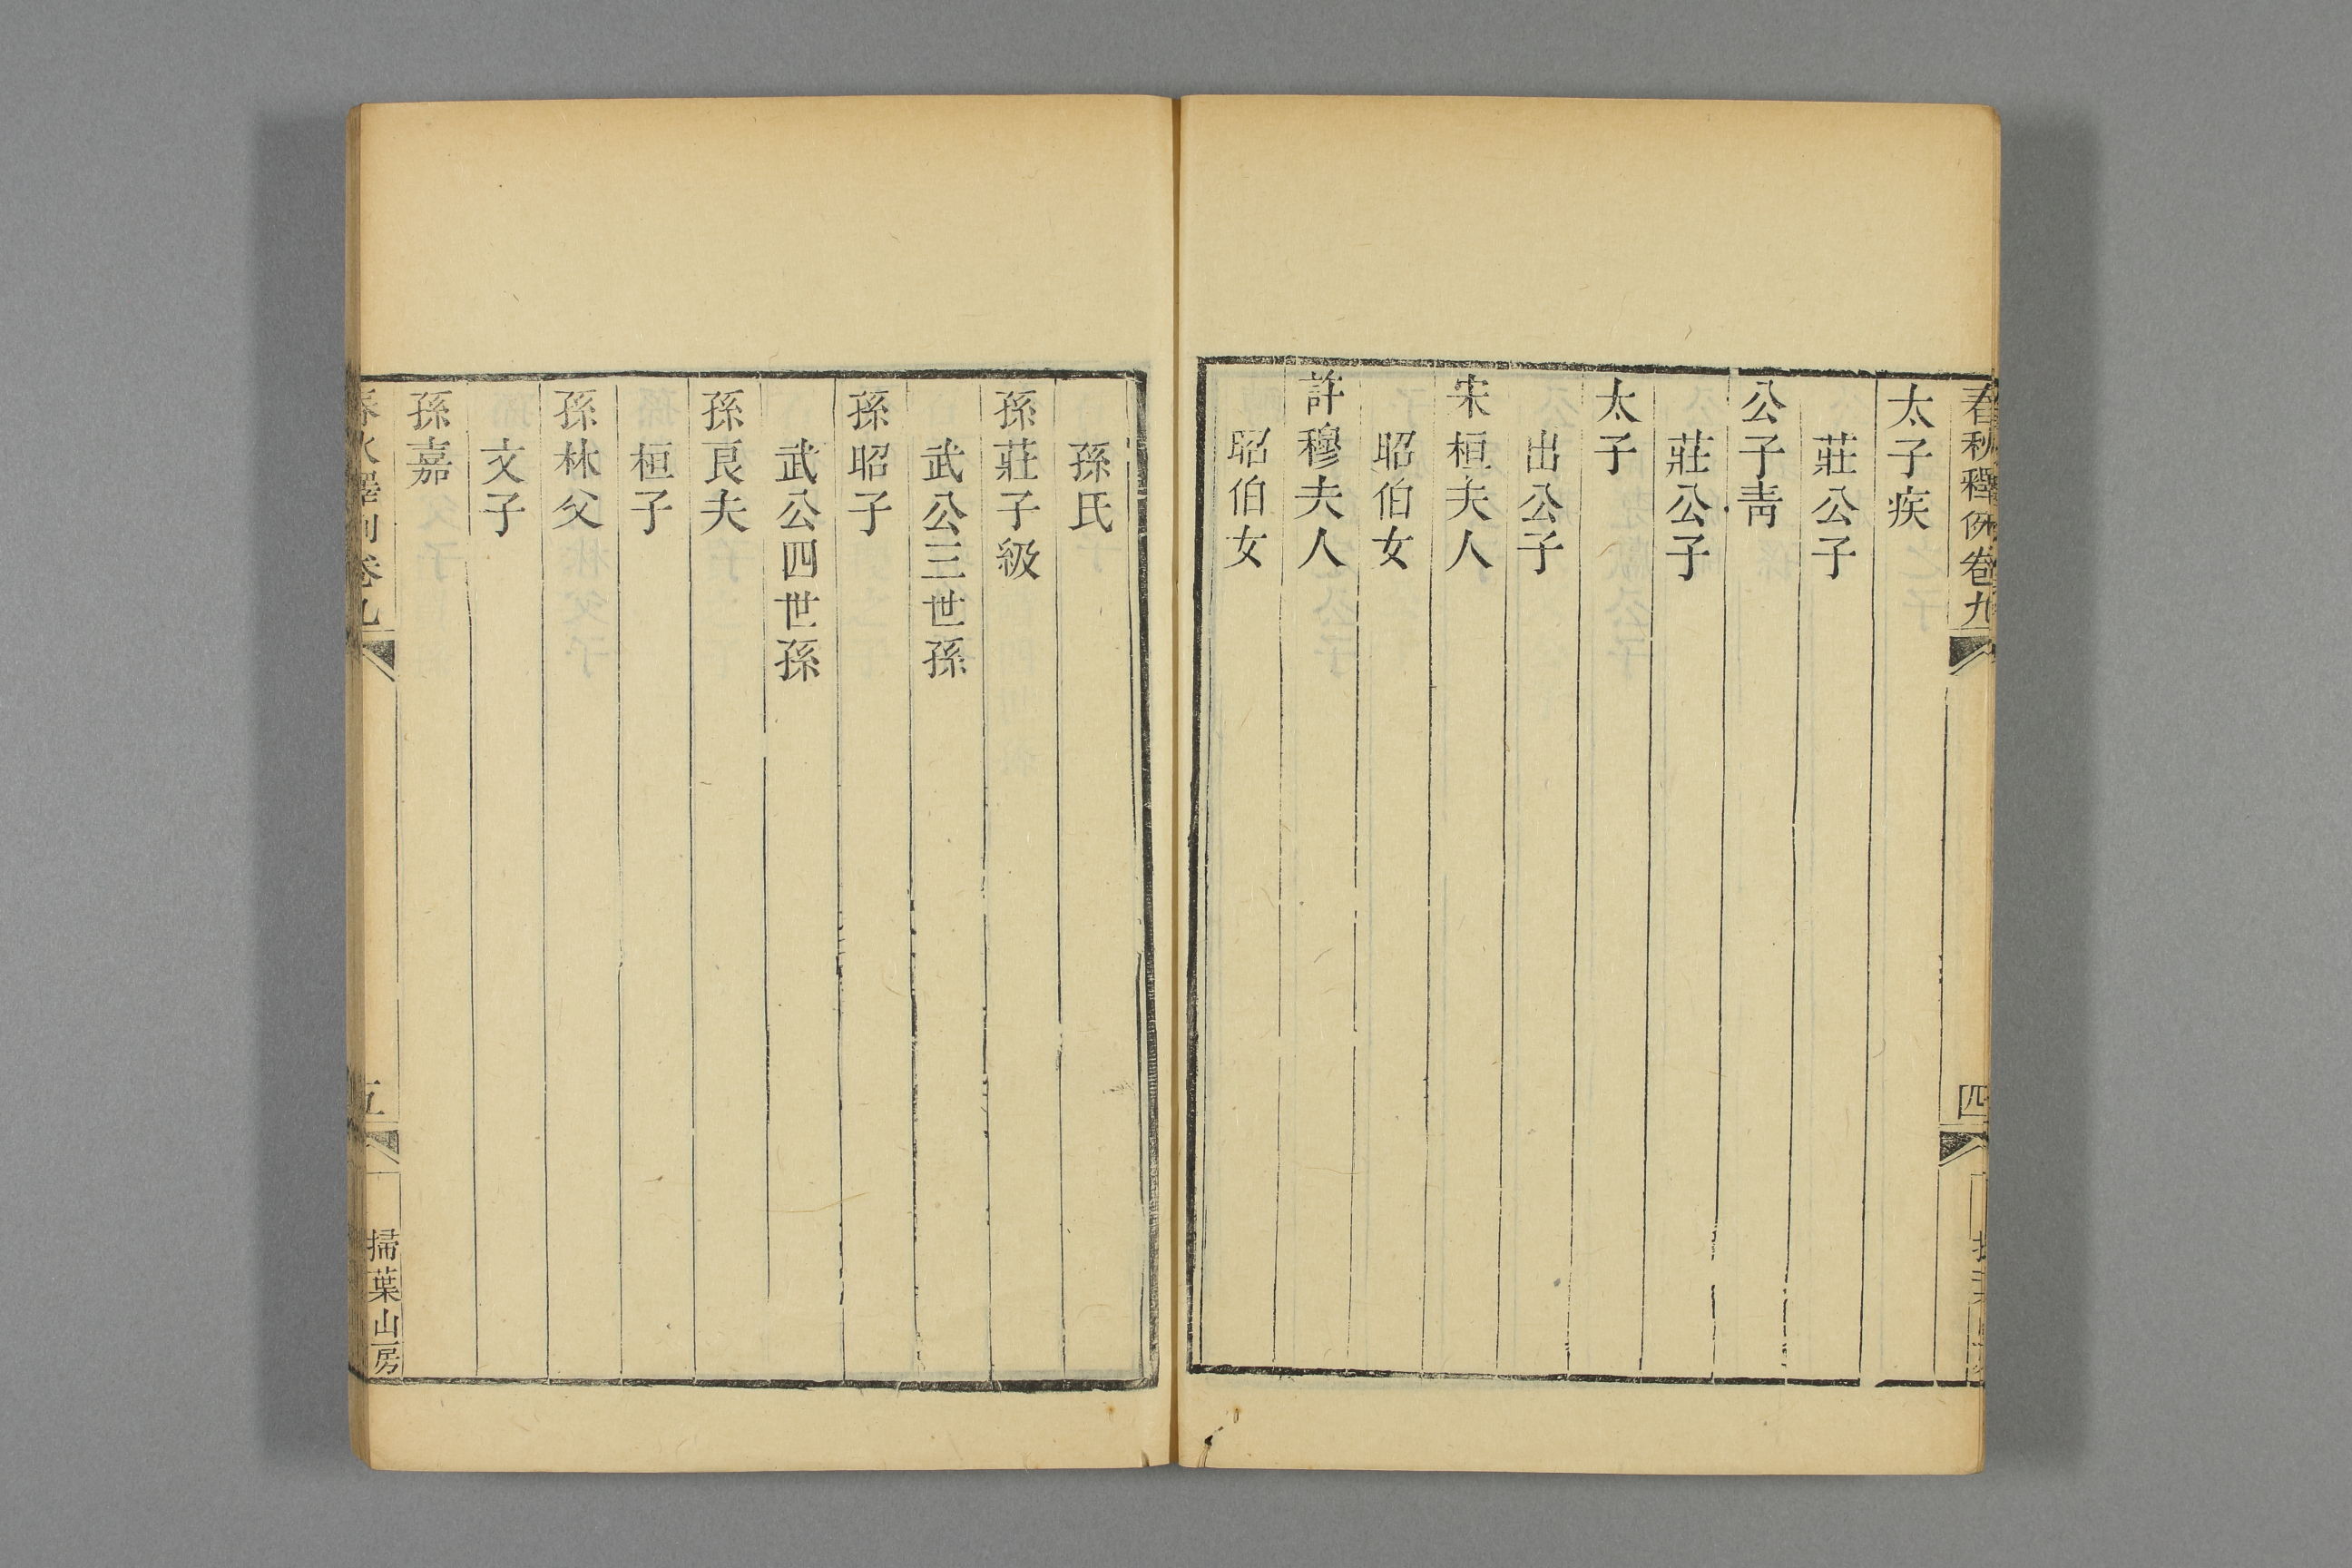 春秋釋例卷九
四
太子疾
莊公子
公子靑
莊公子
太子
出公子
宋桓夫人
昭伯女
許穆夫人
昭伯女
孫氏
孫莊子級
武公三世孫
孫昭子
武公四世孫
孫良夫
桓子
孫林父
文子
孫嘉
春秋釋例卷九
五
掃葉山房